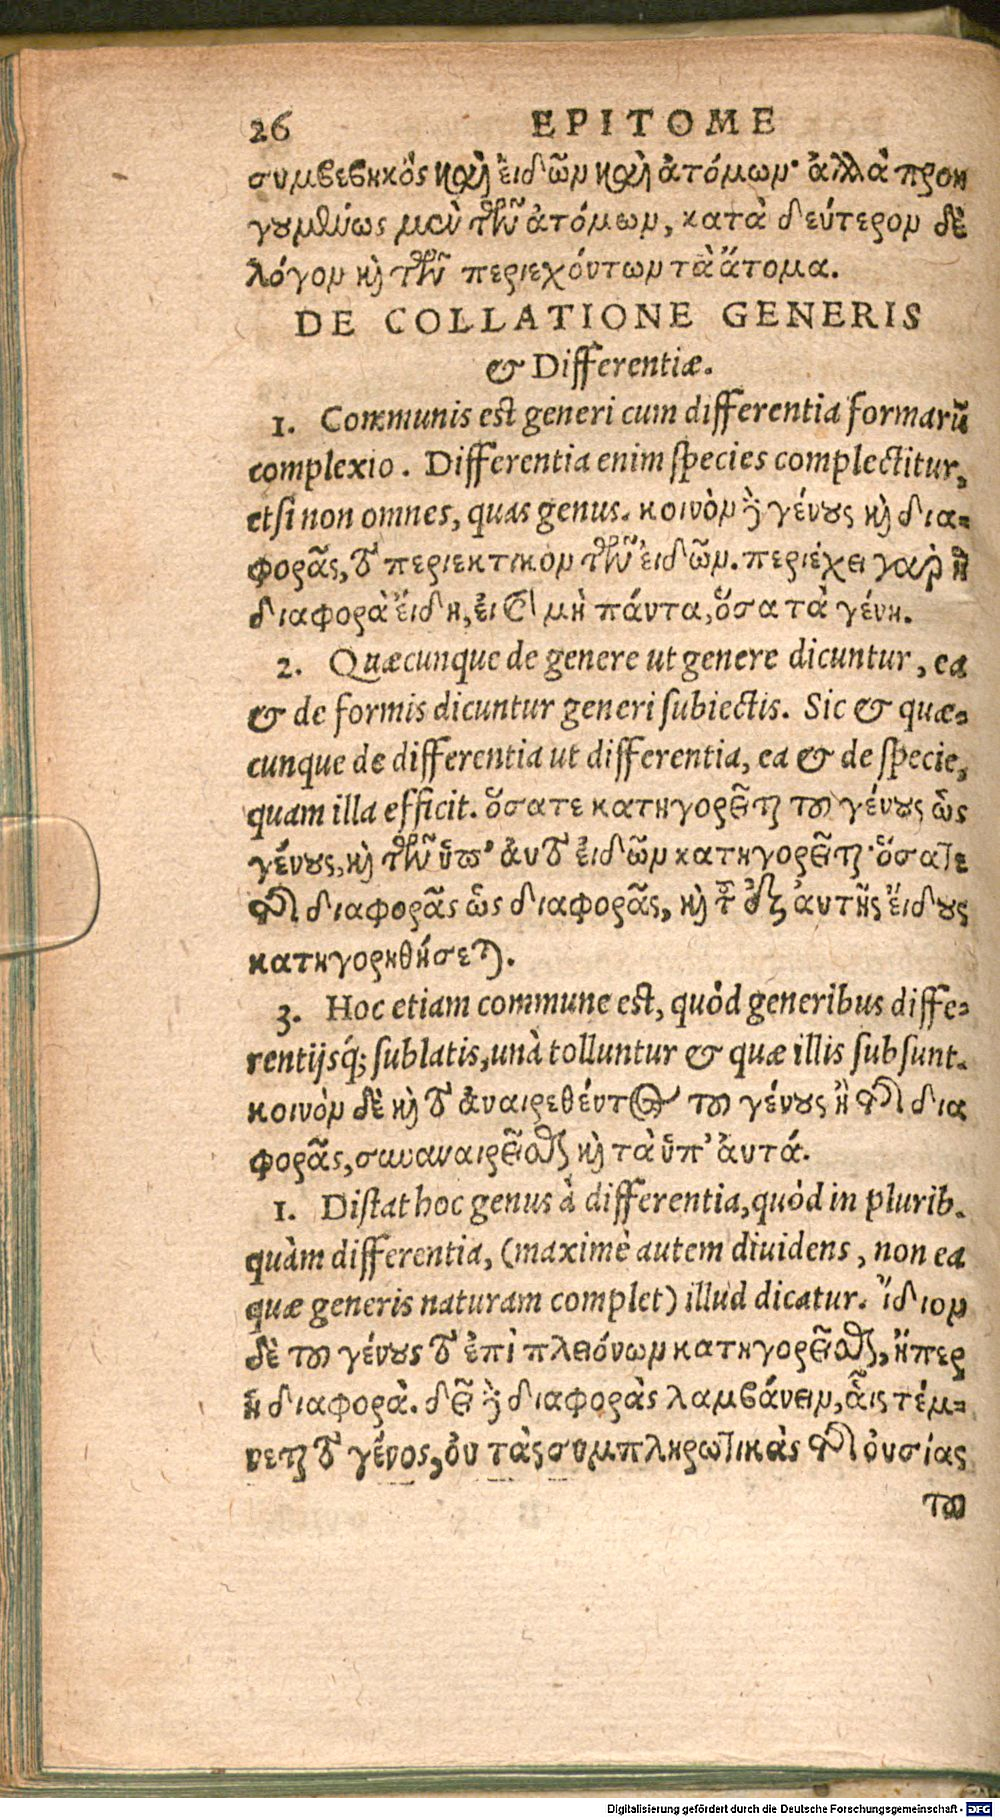 26 EPITOME
συμβεβηκὸς καὶ εἰδῶν καὶ ἀτόμων· ἀλλὰ προη
γουμένως μὲν τῶν ἀτόμων, κατὰ δεύτερον δὲ
λόγον καὶ τῶν περιεχόντων τὰ ἄτομα.
DE COLLATIONE GENERIS
& Differentiæ.
1. Communis est generi cum differentia formarũ
complexio. Differentia enim species complectitur,
etsi non omnes, quas genus. κοινὸν γὰρ γένους καὶ δια-
φορᾶς, τὸ περιεκτικὸν τῶν εἰδῶν. περιέχει γὰρ ἡ
διαφορὰ εἴδη, εἰ καὶ μὴ πάντα, ὅσα τὰ γένη.
2. Quæcunque de genere ut genere dicuntur, ea
& de formis dicuntur generi subiectis. Sic & quæ-
cunque de differentia ut differentia, ea & de specie,
quam illa efficit. ὅσα τε κατηγορεῖται τοῦ γένους ὡς
γένους, καὶ τῶν ὑπ' αὐτὸ εἰδῶν κατηγορεῖται· ὅσα τε
τῆς διαφορᾶς ὡς διαφορᾶς, καὶ τοῦ ἐξ αὐτῆς εἴδους
κατηγορηθήσεται.
3. Hoc etiam commune est, quòd generibus diffe-
rentijsq́; sublatis, unà tolluntur & quæ illis subsunt.
κοινὸν δὲ καὶ τὸ ἀναιρεθέντος τοῦ γένους ἢ τῆς δια
φορᾶς, συναναιρεῖσθαι καὶ τὰ ὑπ' αὐτά.
1. Distat hoc genus à differentia, quòd in plurib.
quàm differentia, (maximè autem diuidens, non ea
quæ generis naturam complet) illud dicatur. ἴδιον
δὲ τοῦ γένους τὸ ἐπὶ πλειόνων κατηγορεῖσθαι, ἤπερ
ἡ διαφορά. δεῖ γὰρ διαφορὰς λαμβάνειν, αἷς τέμ-
νεται τὸ γένος, οὐ τὰς συμπληρωτικὰς τῆς οὐσίας
τοῦ
Digitalisierung gefördert durch die Deutsche Forschungsgemeinschaft - DFG